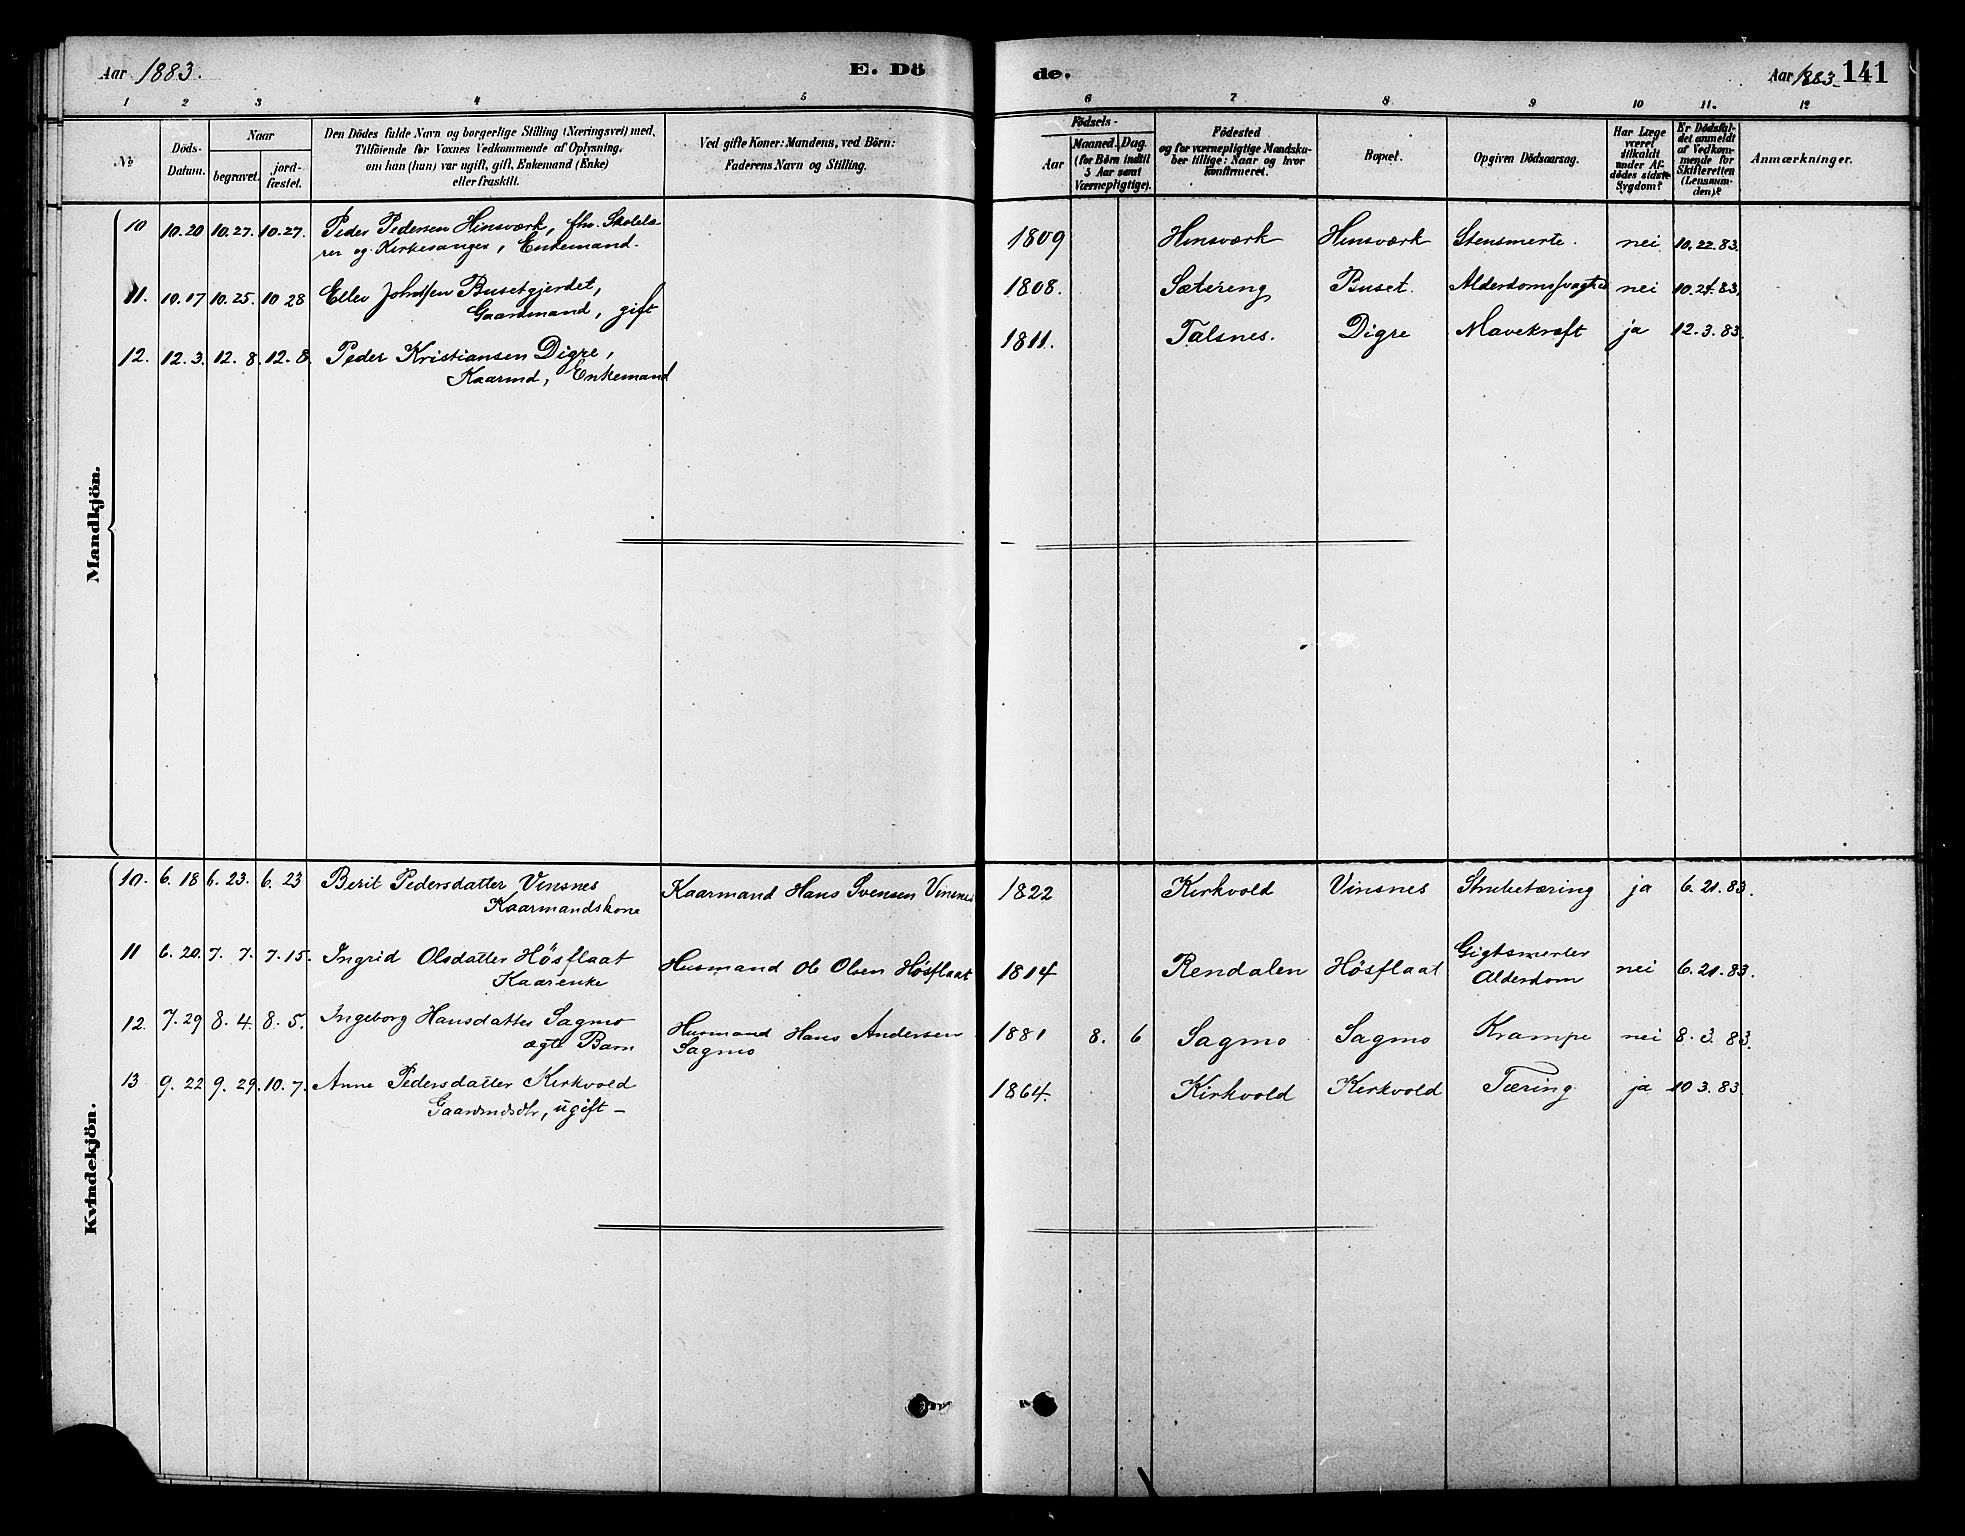 Aar 1883.
E. Dö
de.
Aar 1883.
141
1 2 3 4 5
6 7 8 9 10 11. 12
No
Döds-Datum.
Naar
begravet.
jord-fæstet.
Den Dödes fulde Navn og borgerlige Stilling (Næringsvei) med
Tilföiende for Voxnes Vedkommende af Oplysning,
om han (hun) var ugift, gift, Enkemand (Enke)
eller fraskilt.
Ved gifte Koner: Mandens, ved Börn:
Faderens Navn og Stilling.
Födsels-
Aar
Maaned. Dag.
(for Börn indtil
5 Aar samt
Værnepligtige).
Födested
og for værnepligtige Mandska-
ber tillige: Naar og hvor
konfirmeret.
Bopæl.
Opgiven Dödsaarsag.
Har Læge
været
tilkaldt
under Af-
dödes sidste
Sygdom?
Er Dödsfal-
det anmeldt
af Vedkom-
mende for
Skifteretten
(Lensman-
den)?
Anmærkninger.
Mandkjön.
10 10.20 10.27. 10.27. Peder Pedersen Hinsværk, fhv. Skolelæ-
rer og Kirkesanger, Enkemand.
1809 Hinsværk Hinsværk Stensmerte. nei 10.22.83.
11. 10.17 10.25. 10 28 Ellev Johnssen Busetgjerdet,
Gaardmand, gift
1808. Sætereng Buset. nei 10.24.83.
12. 12.3. 12.8. 12.8. Peder Kristiansen Digre,
Kaarmd, Enkemand
1811. Talsnes. Digre Mavekræft ja 12.3.83.
Kvindekjön.
10. 6.18 6.23. 6.23 Berit Pedersdatter Vinsnes
Kaarmandskone
Kaarmand Hans Svensen Vinsnes 1822 Kirkvold Vinsnes Strubetæring ja 6.21.83.
11 6.20. 7.7. 7.15. Ingrid Olsdatter Hösflaat
Kaarenke
Husmand Ole Olsen Hösflaat 1814 Rendalen Hösflaat Gigtsmerter
Alderdom nei 6.21.83.
12. 7.29 8.4. 8.5. Ingeborg Hansdatter Sagmo
ægte Barn
Husmand Hans Andersen
Sagmo
1881 8. 6 Sagmo Sagmo Krampe nei 8.3.83.
13 9.22 9.29. 10.7. Anne Pedersdatter Kirkvold
Gaardmdsdtr, ugift –
1864. Kirkvold Kirkvold Tæring ja 10 3.83.